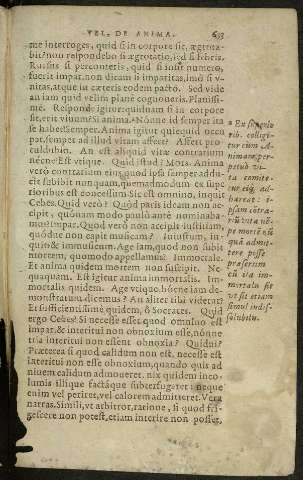 VEL, DE ANIMA. 693
me interroges, quid si in corpore sit, ægrota-
bit? non respondebo si ægrotatio, sed si febris.
Rursus si perconteris, quid si insit numero,
fuerit impar, non dicam si imparitas, imò si v-
nitas, atque in cæteris eodem pacto. Sed vide
an iam quid velim planè cognoueris. Planissi-
mè. Responde igitur: quidnam si in corpore
sit, erit viuum? Si anima. Nónne id semper ita
se habet? Semper. Anima igitur quicquid occu-
pat, semper ad illud vitam affert? Affert pro-
culdubio. An est aliquid vitæ contrarium
nécne? Est vtique. Quid istud? Mors. Anima
verò contrarium eius, quod ipsa semper addu-
cit, subibit nunquam, quemadmodum ex supe-
rioribus est concessum. Sic est omnino, inquit
Cebes. Quid verò? Quod paris ideam non reci-
cipit, quónam modo paulò antè nominaba-
mus? Impar. Quod verò non accipit iustitiam,
quódue non accipit musicam? Iniustum, in-
quit, & immusicum. Age iam, quod non subit
mortem, quomodo appellamus? Immortale.
Et anima quidem mortem non suscipit. Ne-
quaquam. Est igitur anima immortalis. Im-
mortalis quidem. Age vtique, hócne iam de-
monstratum dicemus? An aliter tibi videtur?
Et sufficientissimè quidem, ô Socrates. Quid
ergo Cebes? Si necesse esset quod omnino est
impar, & interitui non obnoxium esse, nónne
tria interitui non essent obnoxia? Quidni?
Præterea si quod calidum non est, necesse est
interitui non esse obnoxium, quando quis ad
niuem calidum admoueret, nix quidem inco-
lumis illique factáque subterfugeret: neque
enim vel periret, vel calorem admitteret. Vera
narras. Simili, vt arbitror, ratione, si quod fri-
gescere non potest, etiam interire non posset,
* Ex superio
rib. colligi-
tur cùm A-
nimam, per-
petuò vi-
ta comite-
tur eiq́; ad-
hæreat: i-
psam côtra-
riũ vitæ nẽ-
pe mortẽ nũ
quã admit-
tere posse
præsertim
cũ ita im-
mortalis sit
vt sit etiam
semel indis-
solubilis.